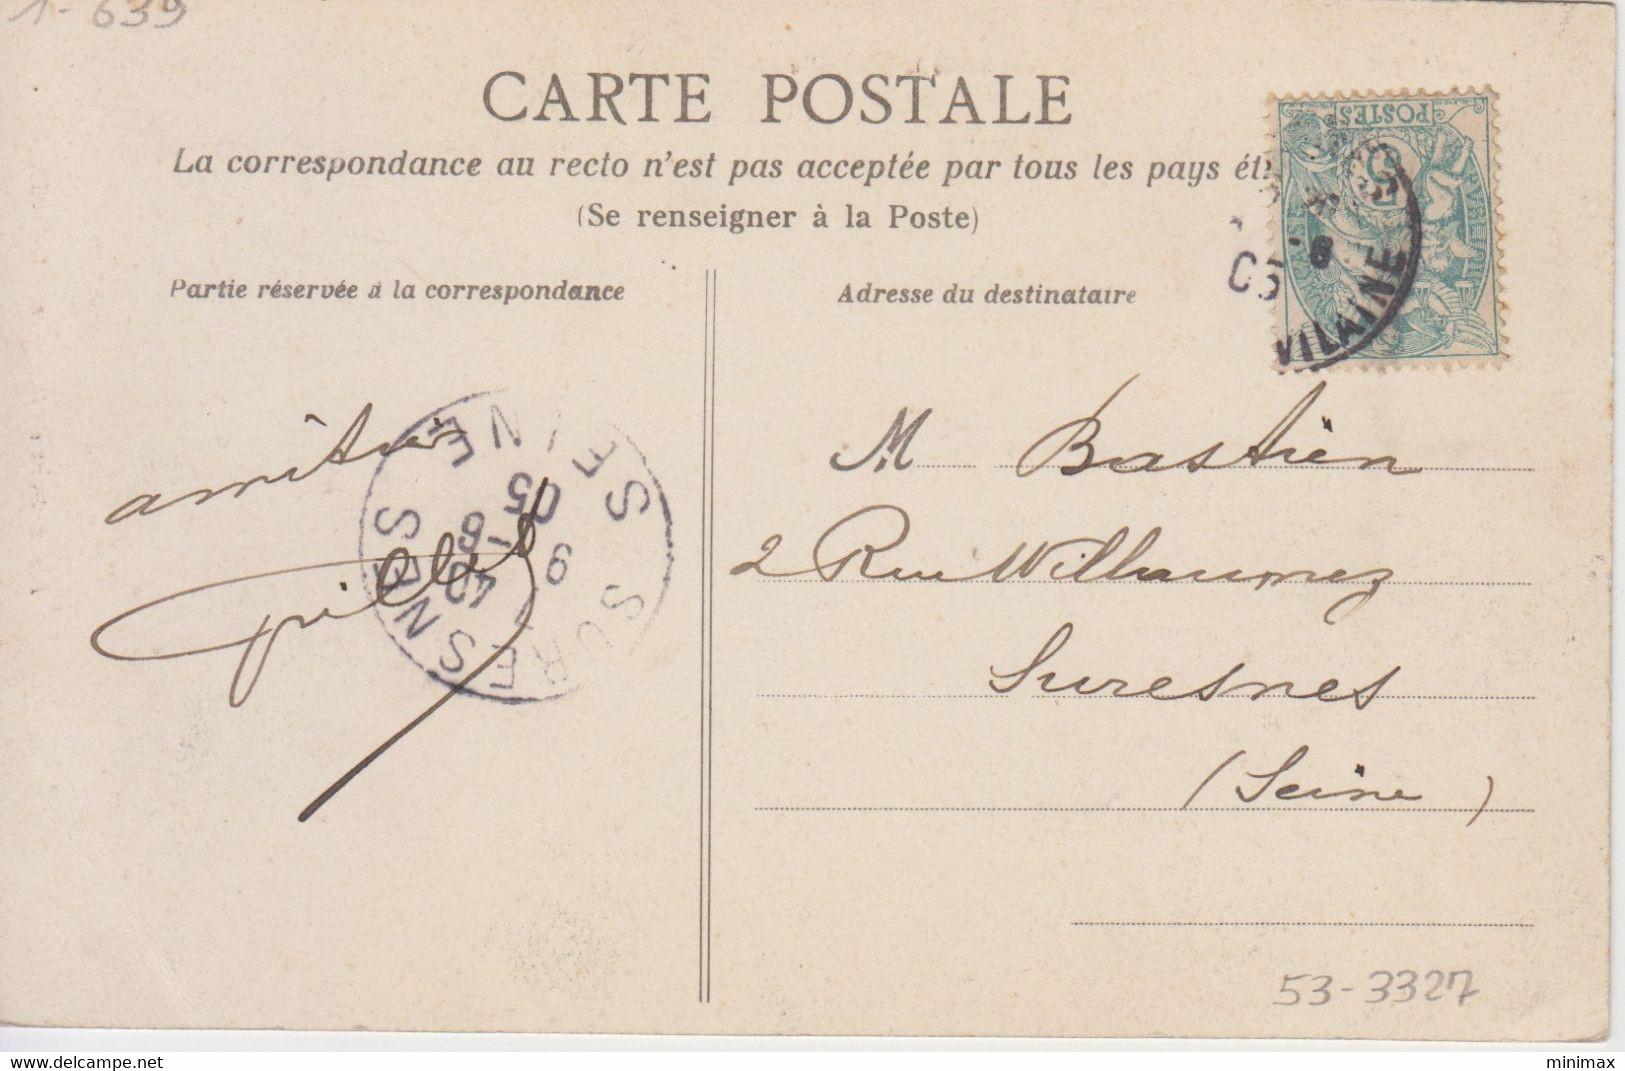 1-639
CARTE POSTALE
La correspondance au recto n'est pas acceptée par tous les pays ét
(Se renseigner à la Poste)
Partie réservée à la correspondance
Adresse du destinataire
POSTES
-6
05
VILAINE
SURESNES
SEINE
-6
05
amitiés
M Bastien
2 Rue Willaumez
Suresnes
(Seine)
53-3327
www.delcampe.net
minimax